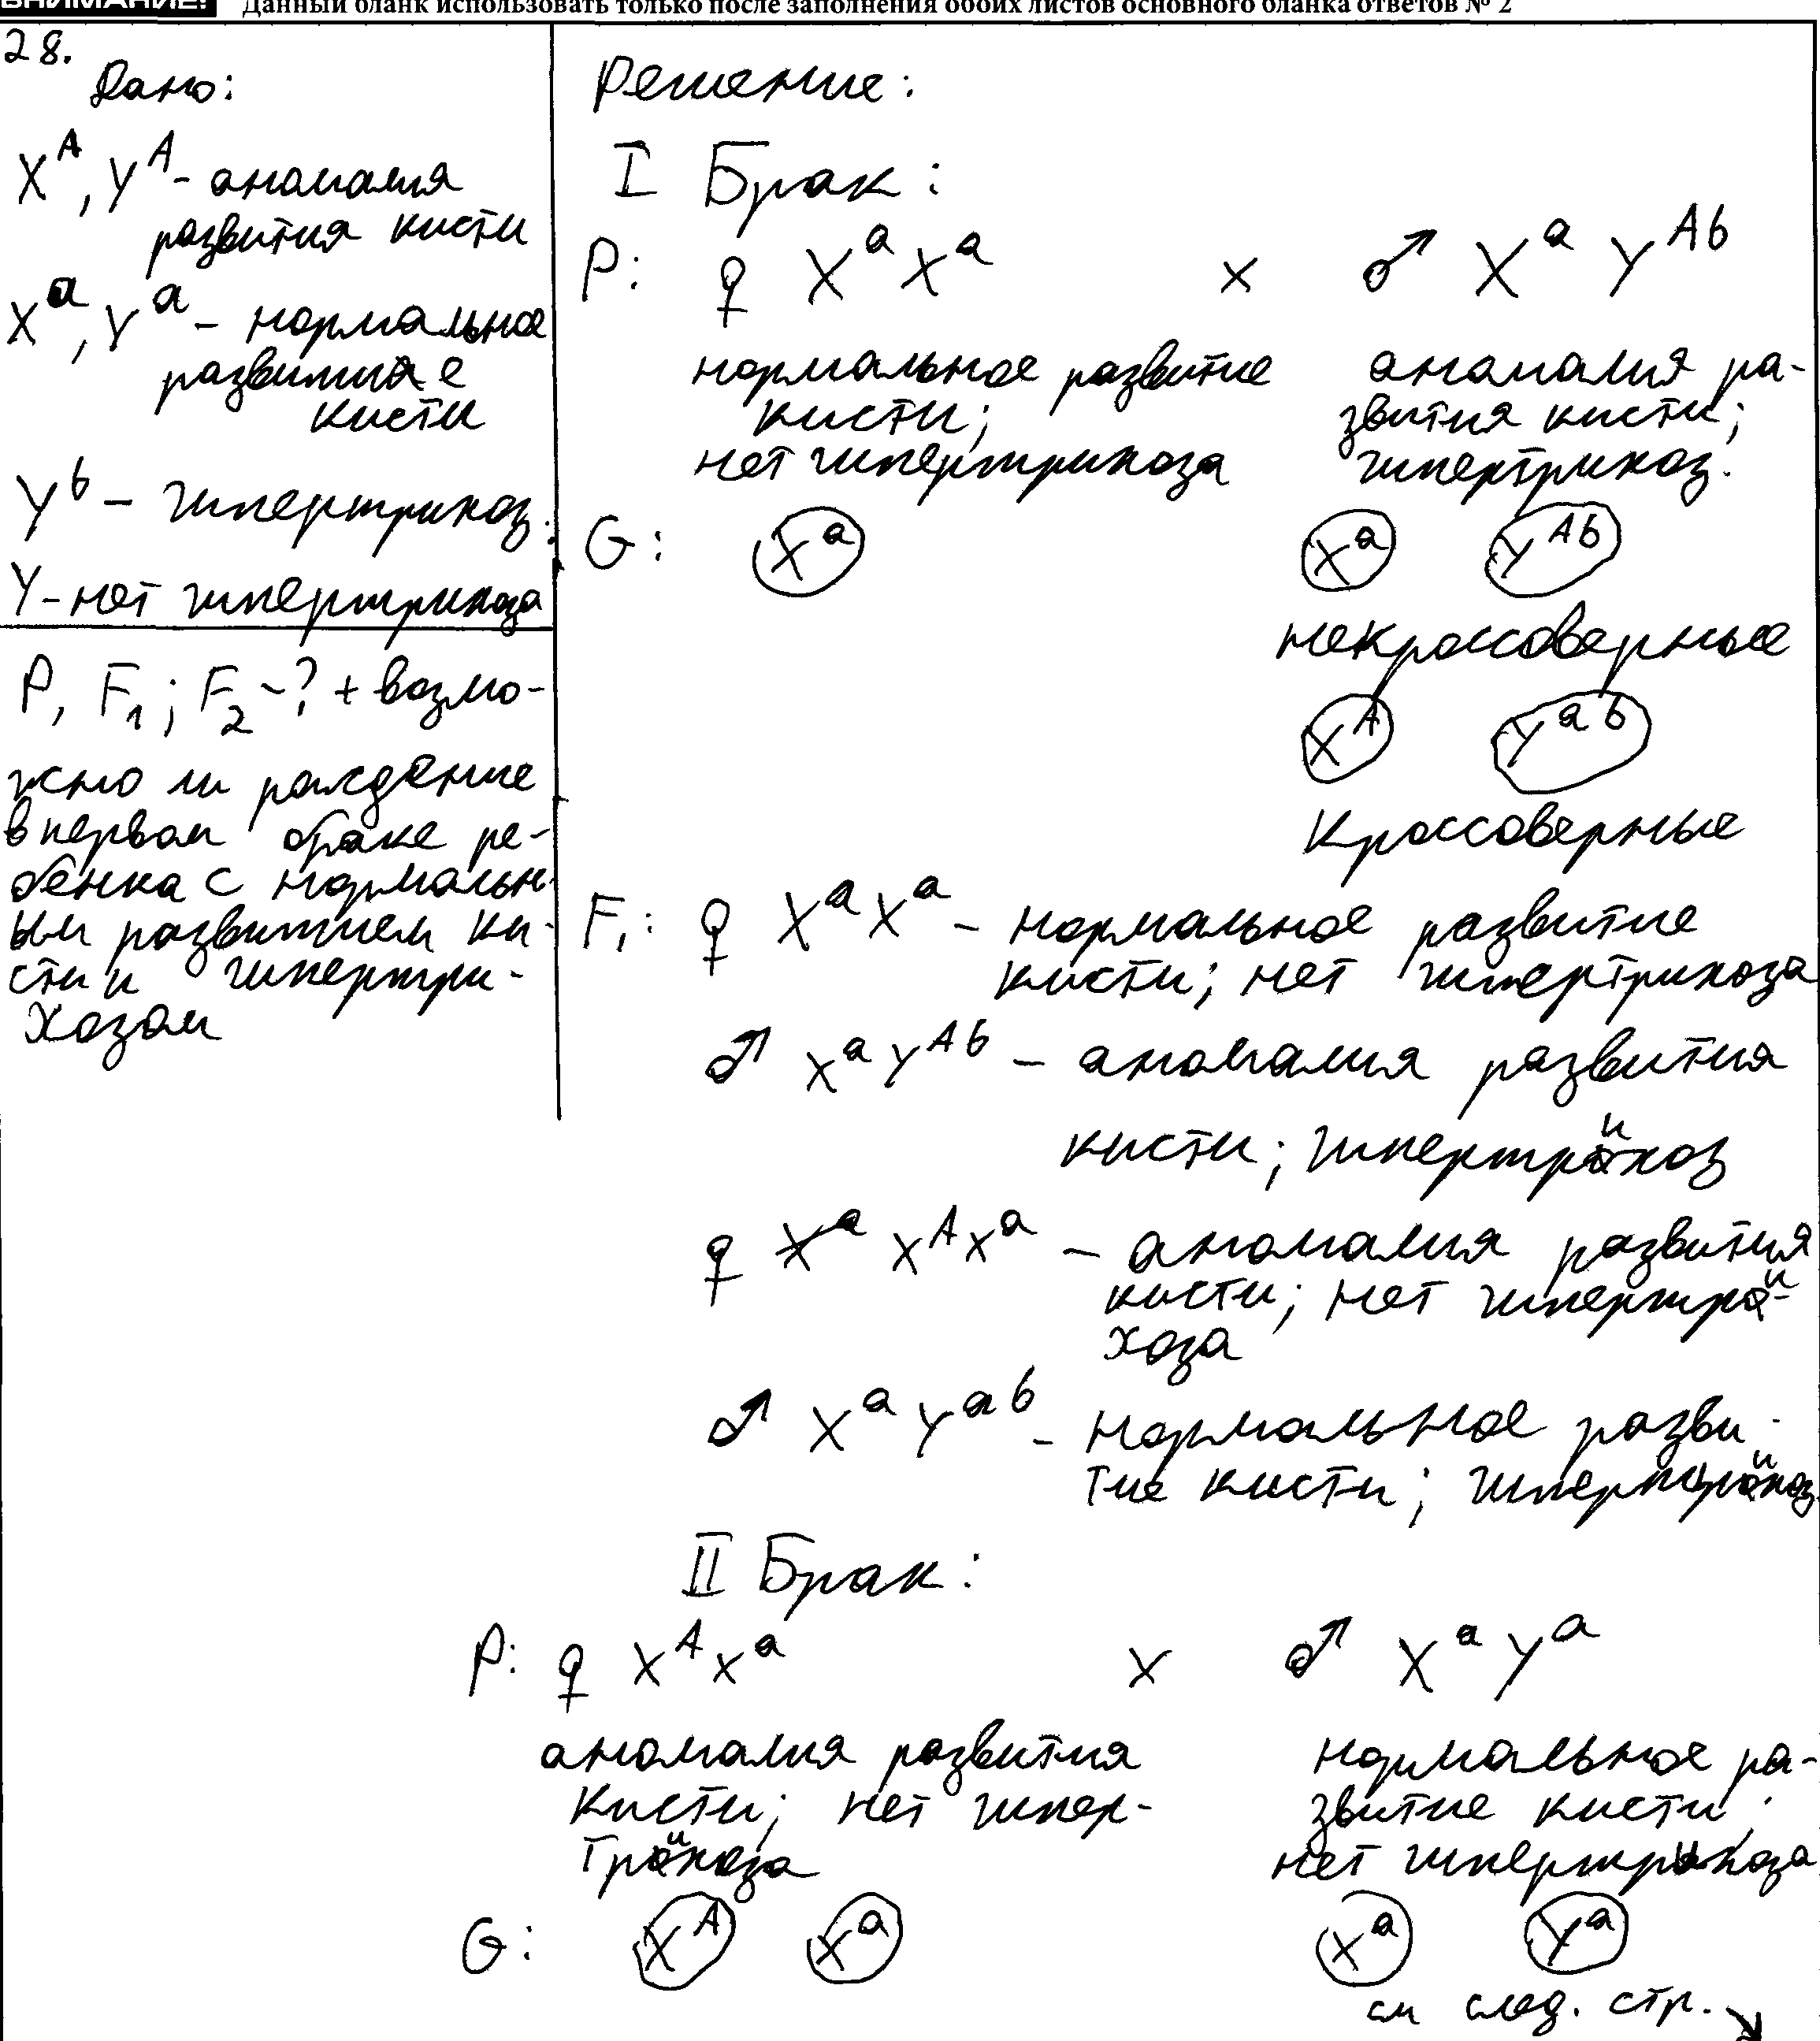 ВНИМАНИЕ! Данный бланк использовать только после заполнения обоих листов основного бланка ответов № 2
28.
Дано:
X^A, Y^A - аномалия
развития кисти
X^a, Y^a - нормальное
развитие
кисти
Y^b - гипертрихоз.
Y - нет гипертрихоза
P, F₁; F₂ - ? + возмо-
жно ли рождение
в первом браке ре-
бёнка с нормальн
ым развитием ки-
сти и гипертри-
хозом
Решение:
I Брак:
P: ♀ X^a X^a x ♂ X^a Y^Ab
нормальное развитие аномалия ра-
кисти; звития кисти;
нет гипертрихоза гипертрихоз.
G: X^a X^a Y^Ab
некроссоверные
X^A Y^ab
Кроссоверные
F₁: ♀ X^a X^a - нормальное развитие
кисти; нет гипертрихоза
♂ X^a Y^Ab - аномалия развития
кисти; гипертрихоз
♀ X^A X^a - аномалия развития
кисти; нет гипертри-
хоза
♂ X^a Y^ab - нормальное разви-
тие кисти; гипертрихоз.
II Брак:
P: ♀ X^A X^a x ♂ X^a Y^a
аномалия развития нормальное ра-
кисти; нет гипер- звитие кисти;
трихоза нет гипертрихоза
G: X^A X^a X^a Y^a
см след. стр. ↘